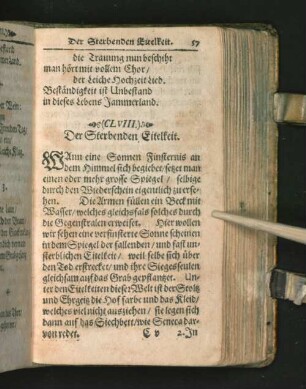 Der Sterbenden Eitelkeit. 57
die Trauung nun beschiht
man hört mit vollem Chor/
der Leiche Hochzeit Lied.
Beständigkeit ist Unbestand
in dieses Lebens Jammerland.
(CLVIII.)
Der Sterbenden Eitelkeit.
WAnn eine Sonnen Finsternis an
dem Himmel sich begiebet/ setzet man
einen oder mehr grosse Spiegel/ selbige
durch den Wiederschein eigentlich zu erse-
hen. Die Armen füllen ein Beck mit
Wasser/ welches gleichfals solches durch
die Gegenstralen erweiset. Hier wollen
wir sehen eine verfinsterte Sonne scheinen
in dem Spiegel der fallenden/ und fast un-
sterblichen Eitelkeit/ weil selbe sich über
den Tod erstrecket/ und ihre Siegsseulen
gleichsam auf das Grab gepflantzet. Un-
ter den Eitelkeiten dieser Welt ist der Stoltz
und Ehrgeitz die Hof farbe und das Kleid/
welches viel nicht ausziehen/ sie legen sich
dann auf das Siechbett/ wie Seneca dar-
von redet. C v 2. In